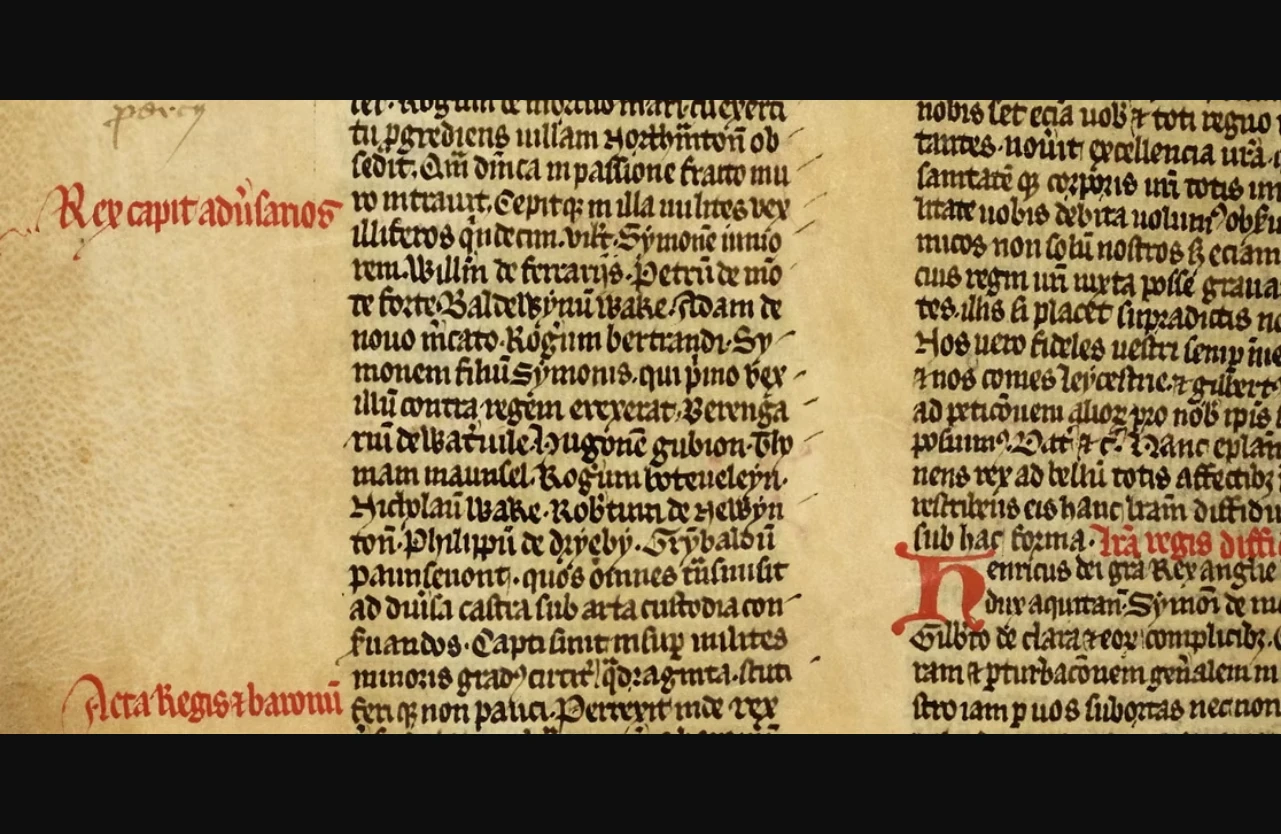 percy
Rex capit adu̔sarios
Acta Regis ⁊ baronū
tu ꝑgrediens uillam Northm̄toñ ob
sedit. Qm̄ dn̄ica in passione fracto mu
ro intrauit. Cepit qꝫ in illa milites vex
illiferos q̍ndecim. viꝫ. Symonē iunio
rem. Willm̄ de ferrarijs. Petrū de mō
te forte. Baldewynū wake. Adam de
nouo m̄cato. Rog̅um bertrandi. Sy
monem filiū Symonis. qui p̍mo vex
illū contra regem erexerat. Berenga
riū de Wat̅uile. Hugonē gubion. Tho
mam maunsel. Rog̅um boteueleyn.
Nicholaū wake. Rob̅tum de Newyn
toñ. Philippū de dryeby. Grybaldū
paunseuont. quos om̄nes t̅nsmisit
ad diu̅sa castra sub arta custodia con
s̅uandos. Capti sunt insup̱ milites
minoris gradꝰ circit̅ q̍draginta. scuti
feri qꝫ non pauci. Perrexit inde rex
nobis set eciā uob̅ ⁊ toti regno
tantes. nou̅it excellencia ur̄a
sanitatē qꝫ corporis ur̄i totis
litate uobis debita uolumꝰ
micos non solū nostros sꝫ eciam
cius regni ur̄i iuxta posse graua
tes. illis si placet supradictis
Nos uero fideles uestri semp̱
⁊ nos comes leycestrie. ⁊ gilbert
ad peticōnem alioꝝ pro nob̅ ip̄is
posuimꝰ. Dat̅ ⁊ c̅. Hanc ep̄lam
nens rex ad bellū totis affectibꝫ
sub hac forma. Lr̄a regis diffi
Henricus dei gr̄a Rex anglie
dux aquitañ. Symoī de
Gilb̅to de clara ⁊ eoꝝ complicibꝫ.
ram ⁊ ꝑturbacōnem gen̅alem
stro iam ꝑ uos subortas necnon